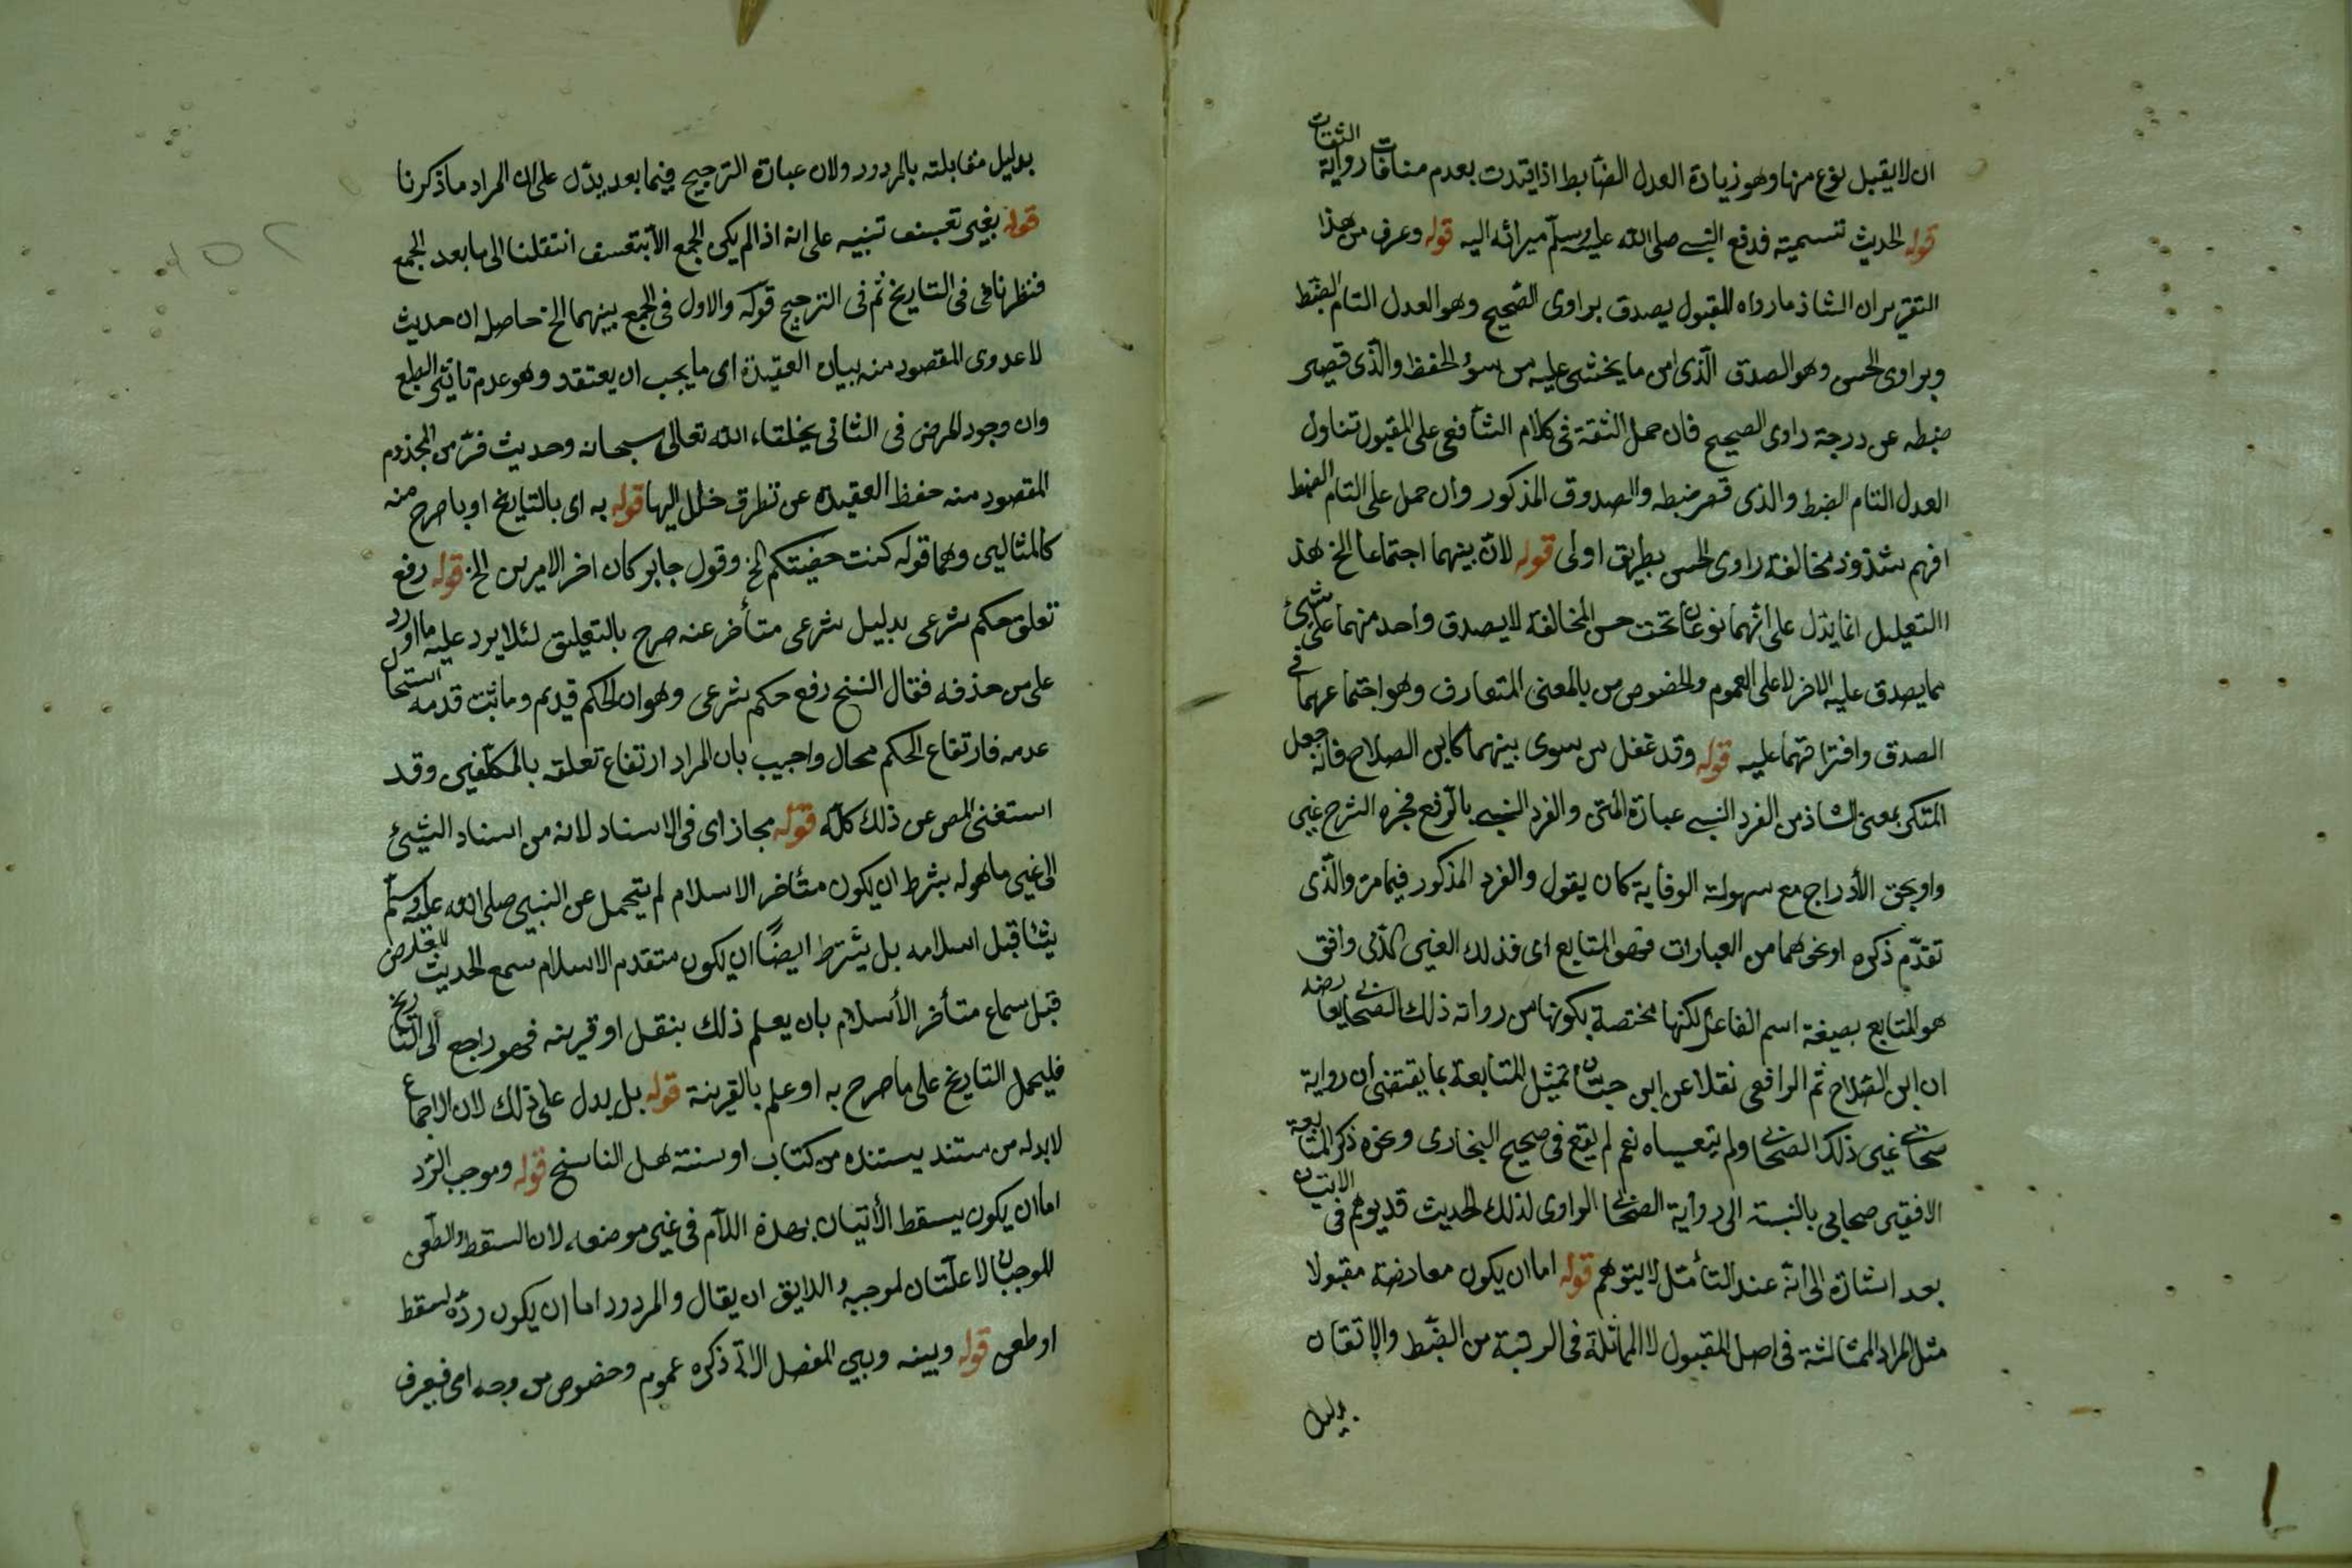 ان لا يقبل نوع منها وهو زيادة العدل الضابط اذا قيدت بعدم منافات رواية الثقات
قوله الحديث تتسمية فدفع النبي صلى الله عليه وسلم ميراثه اليه قوله وعرف من هذا
التقرير ان الشاذ ما رواه المقبول يصدق براوى الصحيح وهو العدل التام الضبط
وبراوى الحسن وهو الصدق الذى امن ما يخشى عليه من سوء الحفظ والذى قصر
ضبطه عن درجة راوى الصحيح فان حمل الثقة فى كلام الشافعى على المقبول تناول
العدل التام الضبط والذى قصر ضبطه والصدوق المذكور وان حمل على التام الضبط
افهم شذوذ مخالفة راوى الحسن بطريق اولى قوله لان بينهما اجتماعا الخ هذ
االتعليل انما يدل على انهما نوعان تحت حسن المخالفة لا يصدق واحد منهما على شئ
مما يصدق عليه الاخر لا على العموم والخصوص من بالمعنى المتعارف وهو اجتماعهما فى
الصدق وافتراقهما عليه قوله وقد غفل من سوى بينهما كابن الصلاح فانه جعل
المنكر بمعنى الشاذ من الفرد النسبى عبارة المتن والفرد النسبى بالرفع فجره الشرح غير
واو بحق الأدراج مع سهولة الوقاية كان يقول والفرد المذكور فيما مر والذى
تقدّم ذكره او نحوهما من العبارات فهو المتابع اى فذلك الغير الذى وافق
هو المتابع بصيغة اسم الفاعل لكنها مختصة بكونها من رواته ذلك الصحابى
ان ابن الصلاح ثم الرافعى نقلا عن ابن حبان تمثيل المتابعة بما يقتضى ان رواية
صحابى غير ذلك الصحابى ولم يتعباه نعم لم يقع فى صحيح البخارى وغره ذكر المتابعة
الافقير صحابى بالنسبة الى رواية الصحابى الراوى لذلك الحديث قد يوهم فى الاتيان
بعد اشارة الى انه عند التأمل لا يتوهم قوله اما ان يكون معارضه مقبولا
مثل المراد المماثلة فى اصل المقبول لا المماثلة فى الرتبة من الضبط والاتقان
بدليل
بدليل مقابلته بالمردود ولان عبارة الترجيح فيما بعد يدل على ان المراد ما ذكرنا
قوله بغير تعسف تنبيه على انه اذا لم يكن الجمع الا بتعسف انتقلنا الى ما بعد الجمع
فنظرنا فى التاريخ ثم فى الترجيح قوله والاول فى الجمع بينهما الخ حاصل ان حديث
لا عدوى المقصود منه بيان العقيدة اى ما يجب ان يعتقد وهو عدم تاثير الطبع
وان وجود المرض فى الثانى بخلقاء الله تعالى سبحانه وحديث فر من المجذوم
المقصود منه حفظ العقيدة عن تطرق خلل اليها قوله به اى بالتاريخ او با صرح منه
كالمثالين وهما قوله كنت نهيتكم الخ وقول جابر كان اخر الامرين الخ قوله رفع
تعلق حكم شرعى بدليل شرعى متأخر عنه صرح بالتعليق لئلا يرد عليه ما اورد
على من حذفه فقال النسخ رفع حكم شرعى وهو ان الحكم قديم وما ثبت قدمه استحال
عدمه فارتفاع الحكم محال واجيب بان المراد ارتفاع تعلقه بالمكلفين وقد
استغنى المص عن ذلك كله قوله مجاز اى فى الاسناد لانه من اسناد الشئ
الى غير ما هو له بشرط ان يكون متأخر الاسلام لم يتحمل عن النبي صلى الله عليه وسلم
شيئا قبل اسلامه بل يشترط ايضًا ان يكون متقدم الاسلام سمع الحديث المعارض
قبل سماع متأخر الأسلام بان يعلم ذلك بنقل او قرينه فهو راجع الى التاريخ
فليحمل التاريخ على ما صرح به او علم بالقرينة قوله بل يدل على ذلك لان الاجماع
لا بد له من ستند يستنده من كتاب او سنة هل الناسخ قوله وموجب الرد
اما ان يكون بسقط الأتيان بهذه اللآم فى غير موضعه لان السقط والطعن
الموجبان لا علتان لموجبه واللايق ان يقال والمردود اما ان يكون رده لسقط
او طعن قوله وبينه وبين المعضل الاتى ذكره عموم وخصوص من وجه اى فيعرف